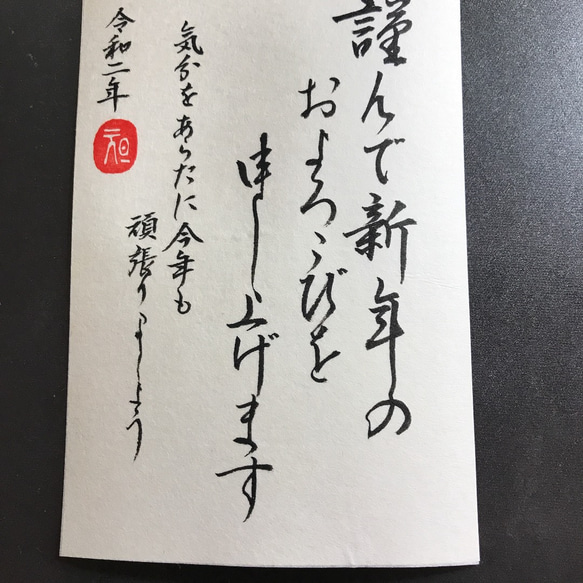 謹んで新年の
およろこびを
申し上げます
気分をあらたに今年も
頑張りましょう
令和二年
元旦